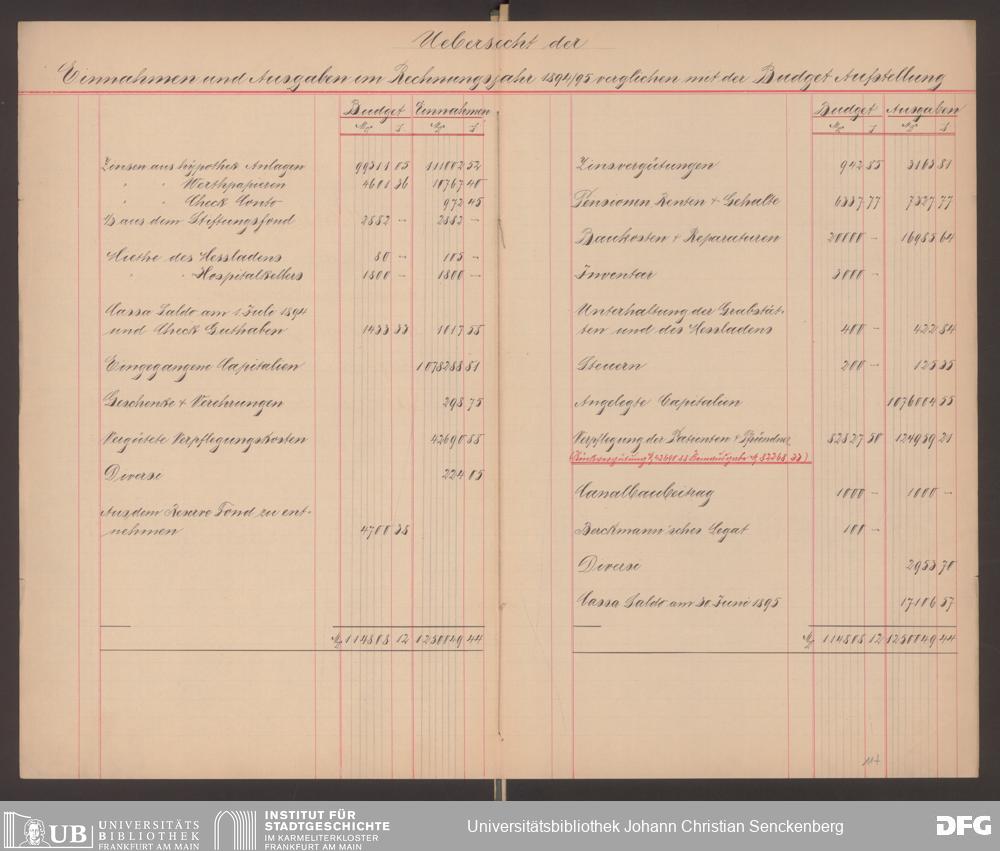 Uebersicht der
Einnahmen und Ausgaben im Rechnungsjahr 1894/95 verglichen mit der Budget Aufstellung
Budget Einnahmen
M ₰ M ₰
Zinsen aus hypothek Anlagen 99311 05 111002 52
" " Werthpapieren 4601 36 10767 40
" " Check Conto 972 45
aus dem Stiftungsfond 2882 – 2882 –
Miethe des Messladens 80 – 105 –
" " Hospitalkellers 1800 – 1800 –
Cassa Saldo am 1 Juli 1894
und Check Guthaben 1433 33 1017 55
Eingegangene Capitalien 1078288 81
Geschenke & Verehrungen 298 75
Vergütete Verpflegungskosten 42690 88
Diverse 224 05
Aus dem Reserve Fond zu ent-
nehmen 4700 38
M 114808 12 1250049 44
Budget Ausgaben
M ₰ M ₰
Zinsvergütungen 942 85 3163 81
Pensionen Renten & Gehalte 6537 77 7327 77
Baukosten & Reparaturen 20000 – 16985 64
Inventar 3000 –
Unterhaltung der Grabstät-
ten und des Messladens 400 – 422 84
Steuern 200 – 125 35
Angelegte Capitalien 1076004 55
Verpflegung der Patienten & Pfründner 82827 50 124959 21
(Rückvergütung M 42690 88 Reinausgabe M 82268 33)
Canalbaubeitrag 1000 – 1000 –
Berckmann'sches Legat 100 –
Diverse 2953 70
Cassa Saldo am 30 Juni 1895 17106 57
M 114808 12 1250049 44
117
UB UNIVERSITÄTS
BIBLIOTHEK
FRANKFURT AM MAIN
INSTITUT FÜR
STADTGESCHICHTE
IM KARMELITERKLOSTER
FRANKFURT AM MAIN
Universitätsbibliothek Johann Christian Senckenberg
DFG